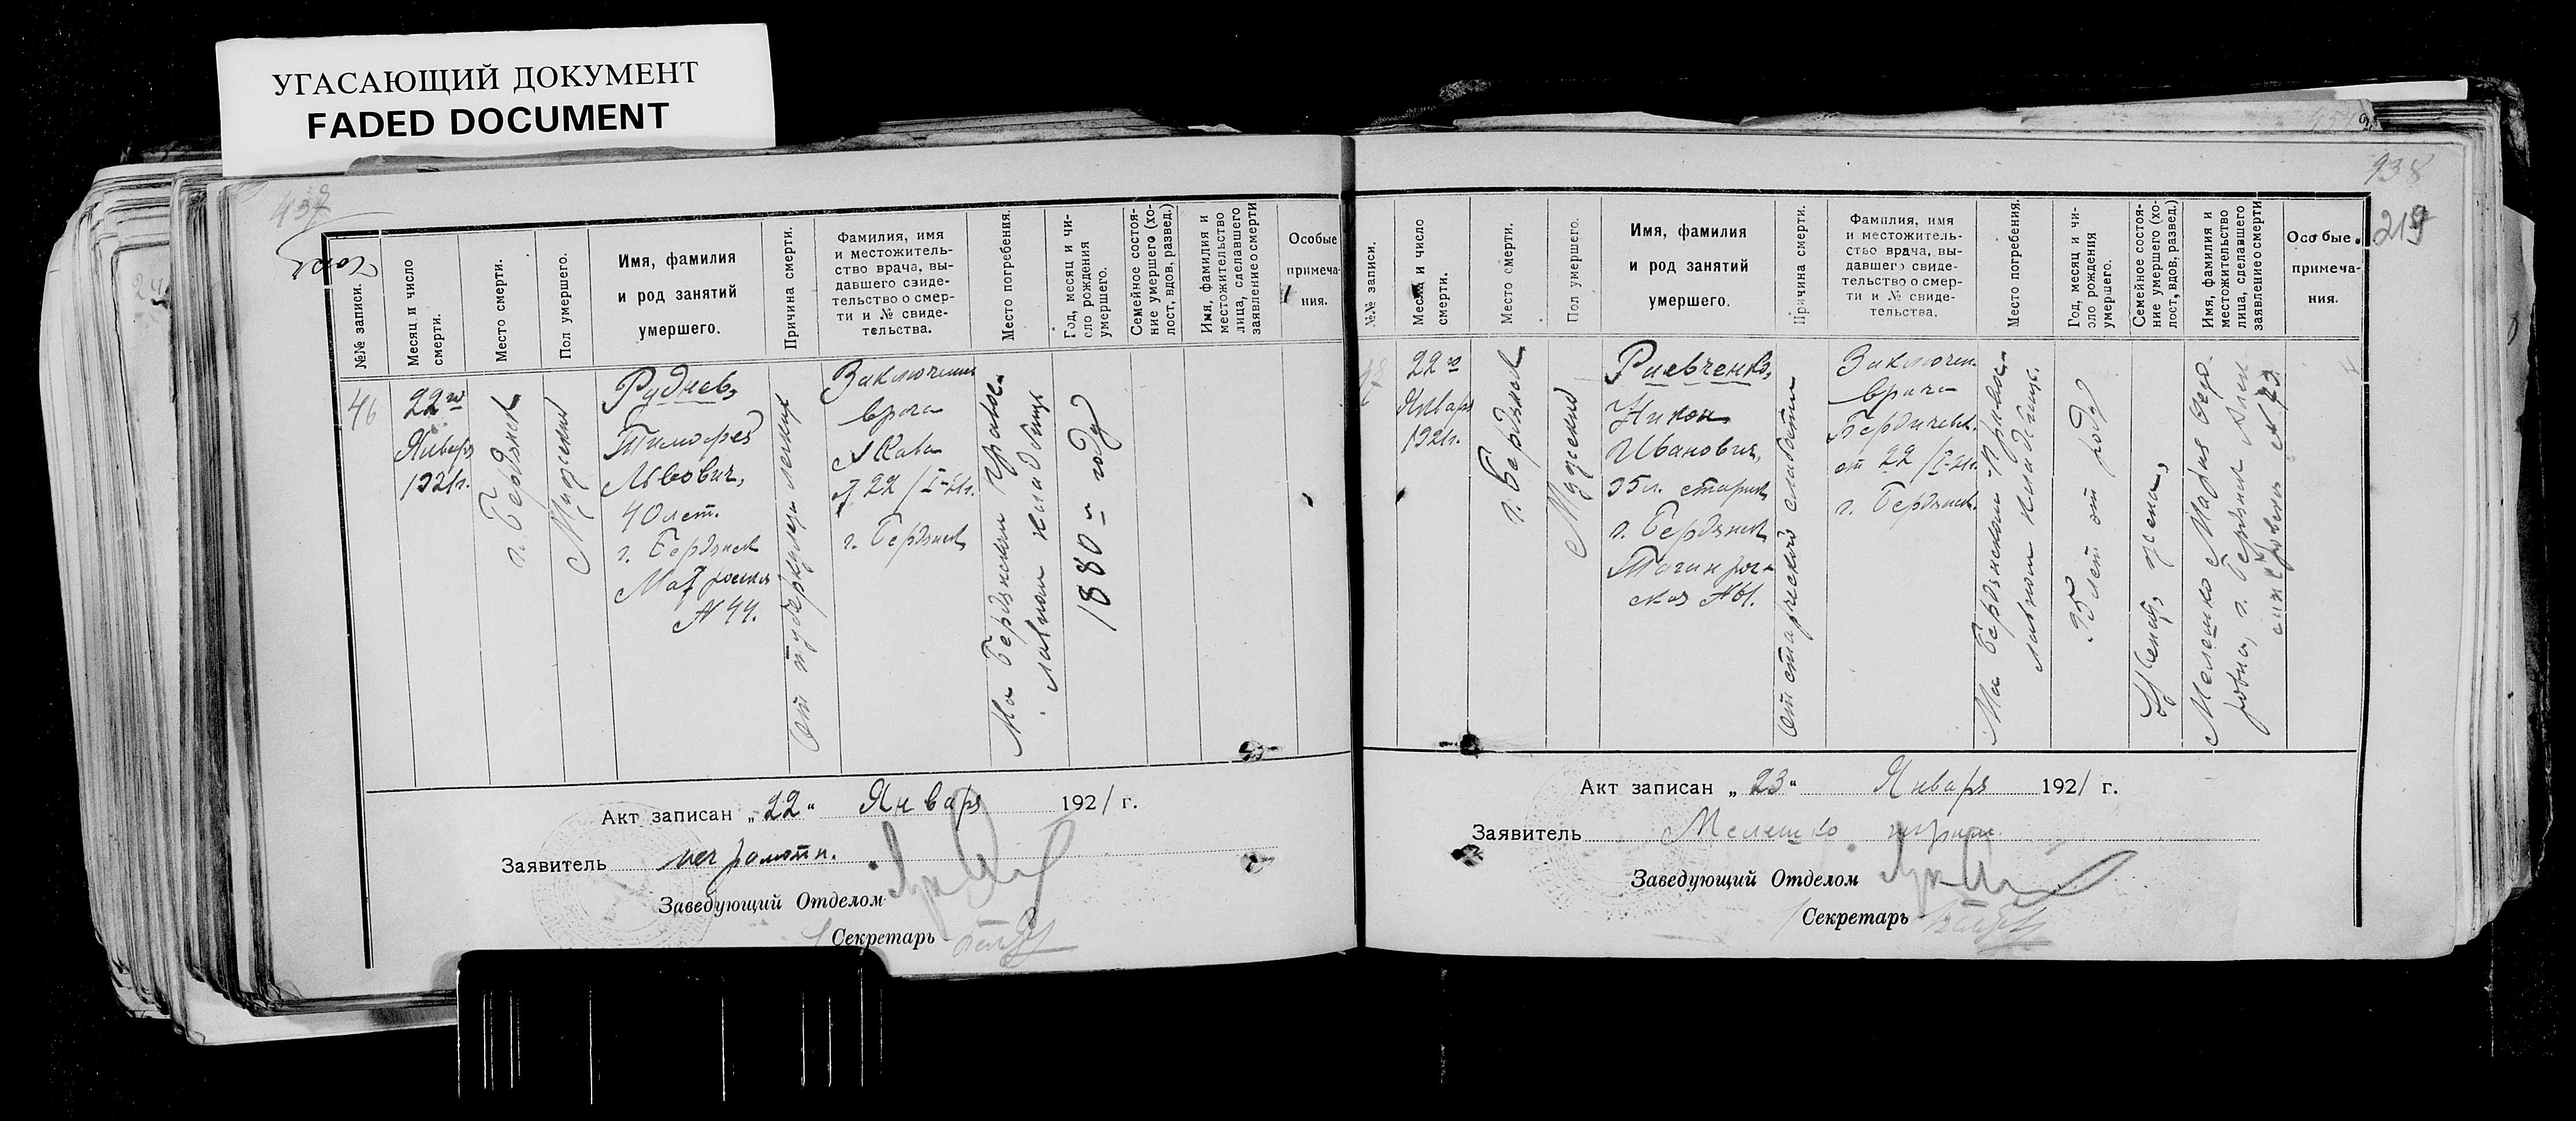 УГАСАЮЩИЙ ДОКУМЕНТ
FADED DOCUMENT
437
№№ записи.
Месяц и число
смерти.
Место смерти.
Пол умершего.
Имя, фамилия
и род занятий
умершего.
Причина смерти.
Фамилия, имя
и местожитель-
ство врача, вы-
давшего свиде-
тельство о смер-
ти и № свиде-
тельства.
Место погребения.
Год, месяц и чи-
сло рождения
умершего.
Семейное состоя-
ние умершего (хо-
лост, вдов, развед.)
Имя, фамилия и
местожительство
лица, сделавшего
заявление о смерти
Особые
примеча-
ния.
46
22го
Января
1921г.
г. Бердянск
Мужской
Руднев,
Тимофей
Львович,
40 лет.
г. Бердянск
N 44.
От туберкулеза легких
Заключение
врача
22/I-21г.
г. Бердянск
На Бердянском правос-
лавном кладбище
1880 - году
Акт записан „22“ Января 1921 г.
Заявитель неграмотн.
Заведующий Отделом
Секретарь
938
219
№№ записи.
Месяц и число
смерти.
Место смерти.
Пол умершего.
Имя, фамилия
и род занятий
умершего.
Причина смерти.
Фамилия, имя
и местожитель-
ство врача, вы-
давшего свиде-
тельство о смер-
ти и № свиде-
тельства.
Место погребения.
Год, месяц и чи-
сло рождения
умершего.
Семейное состоя-
ние умершего (хо-
лост, вдов, развед.)
Имя, фамилия и
местожительство
лица, сделавшего
заявление о смерти
Особые
примеча-
ния.
22го
Января
1921г.
г. Бердянск
Мужской
Никон
Иванович,
95л. старик
г. Бердянск
Таганрог-
ская
От старческой слабости
Заключен.
врача
Бердичевск.
от 22/I-21г.
г. Бердянск.
На Бердянском Правос-
лавном кладбище.
95 лет от роду
Женат,
Мелешко Мария Федо-
ровна, г. Бердянск
N 73.
Акт записан „23“ Января 1921 г.
Заявитель Мелешко
Заведующий Отделом
Секретарь